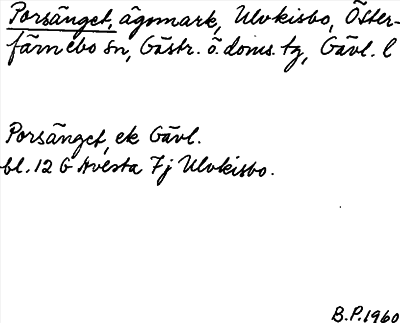 Porsänget, ägomark, Ulvkisbo, Öster-
färnebo sn, Gästr. ö. doms. tg, Gävl. l
Porsänget, ek Gävl.
bl. 12 G Avesta 7j Ulvkisbo.
B.P. 1960